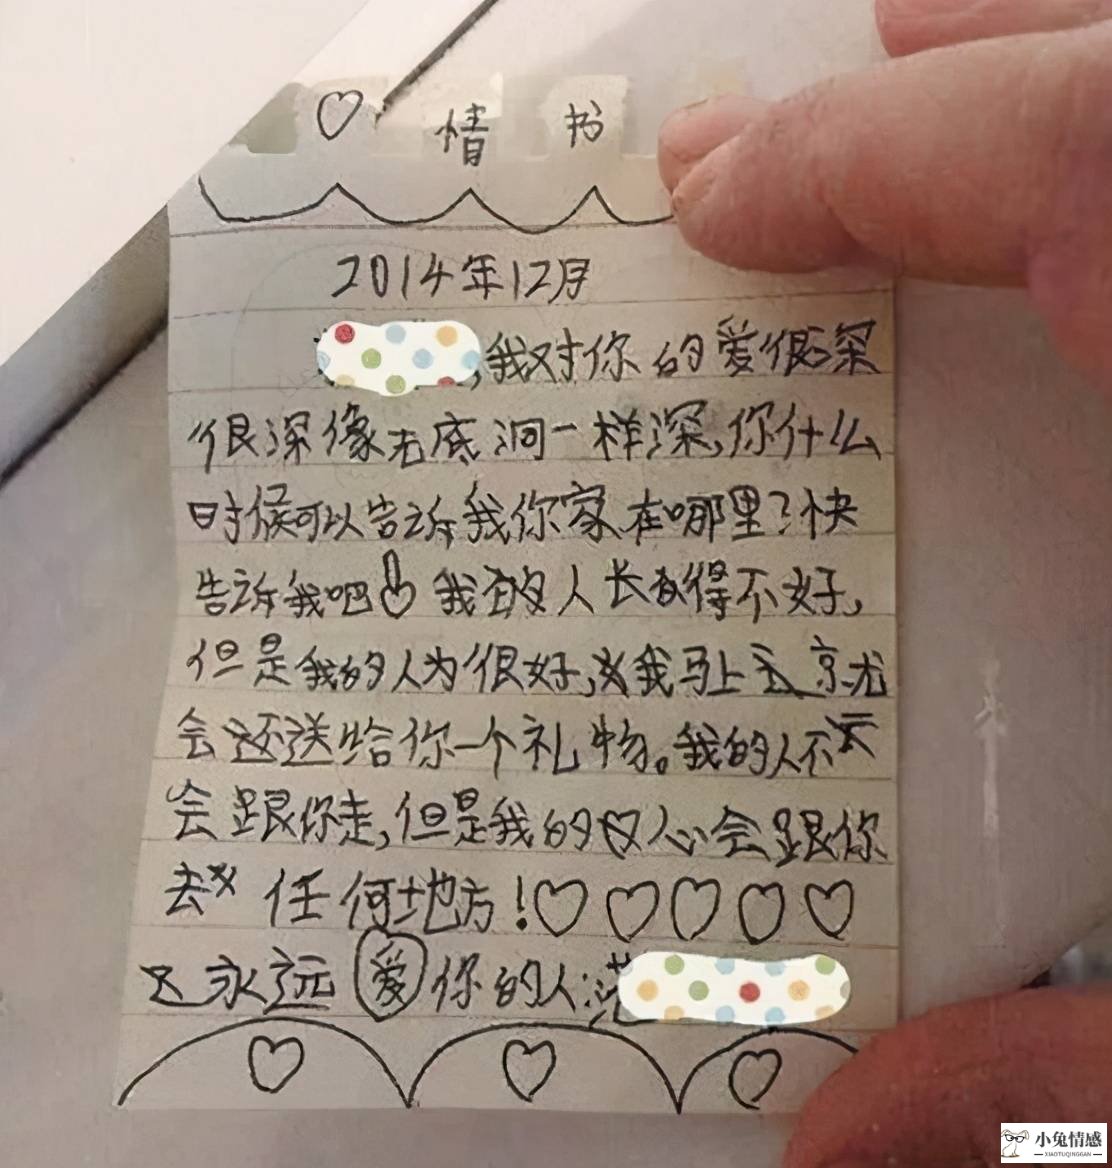 ♡ 情书
2014年12月
,我对你的爱很深
很深像无底洞一样深,你什么
时候可以告诉我你家在哪里?快
告诉我吧 我的人长得不好,
但是我的人为很好,我马上去京尤
会还送给你一个礼物。我的人不
会跟你走,但是我的心会跟你
去任何地方!♡♡♡♡♡
永远爱你的人:范
小兔情感
XIAOTUQINGGAN